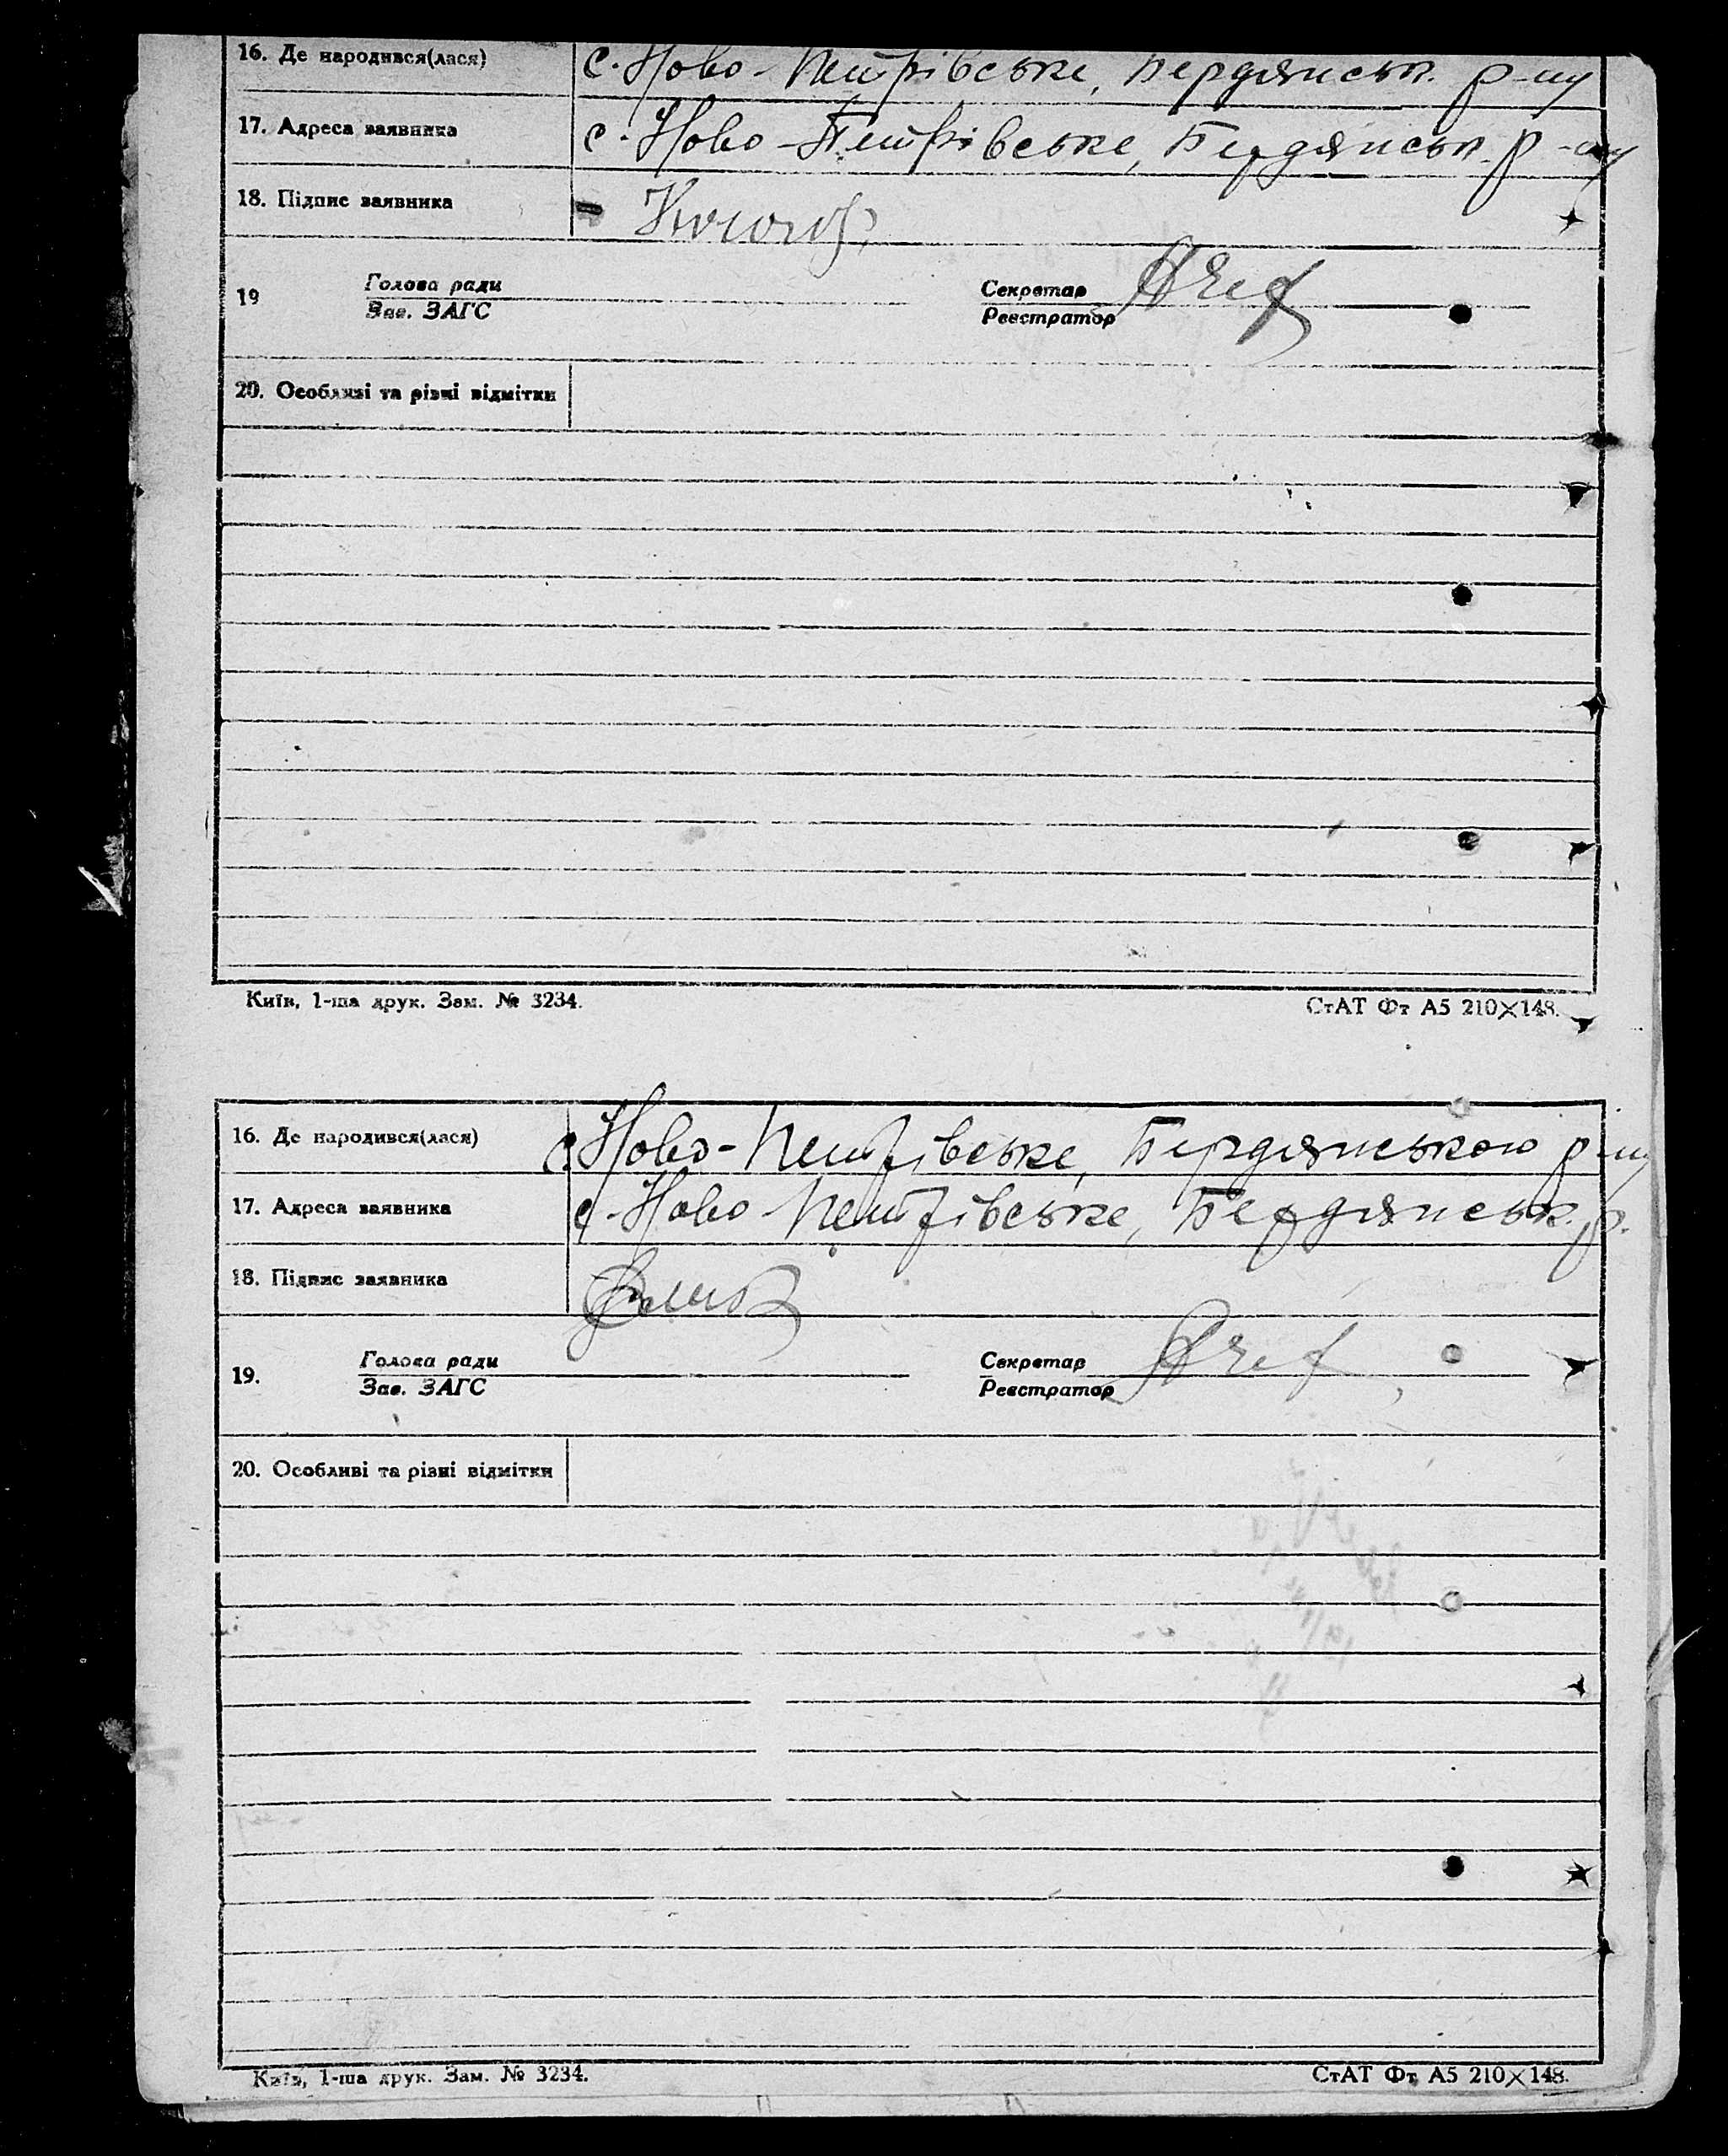 16. Де народився(лася) с. Ново-Петрівське, Бердянськ. р-ну
17. Адреса заявника с. Ново-Петрівське, Бердянськ. р-ну
18. Підпис заявника
Голова ради Секретар
19 Зав. ЗАГС Реєстратор
20. Особливі та різні відмітки
Київ, 1-ша друк. Зам. № 3234. СтАТ Фт А5 210×148.
16. Де народився(лася) с. Ново-Петрівське, Бердянського р-ну
17. Адреса заявника с. Ново-Петрівське, Бердянськ. р.
18. Підпис заявника
Голова ради Секретар
19. Зав. ЗАГС Реєстратор
20. Особливі та різні відмітки
Київ, 1-ша друк. Зам. № 3234. СтАТ Фт А5 210×148.